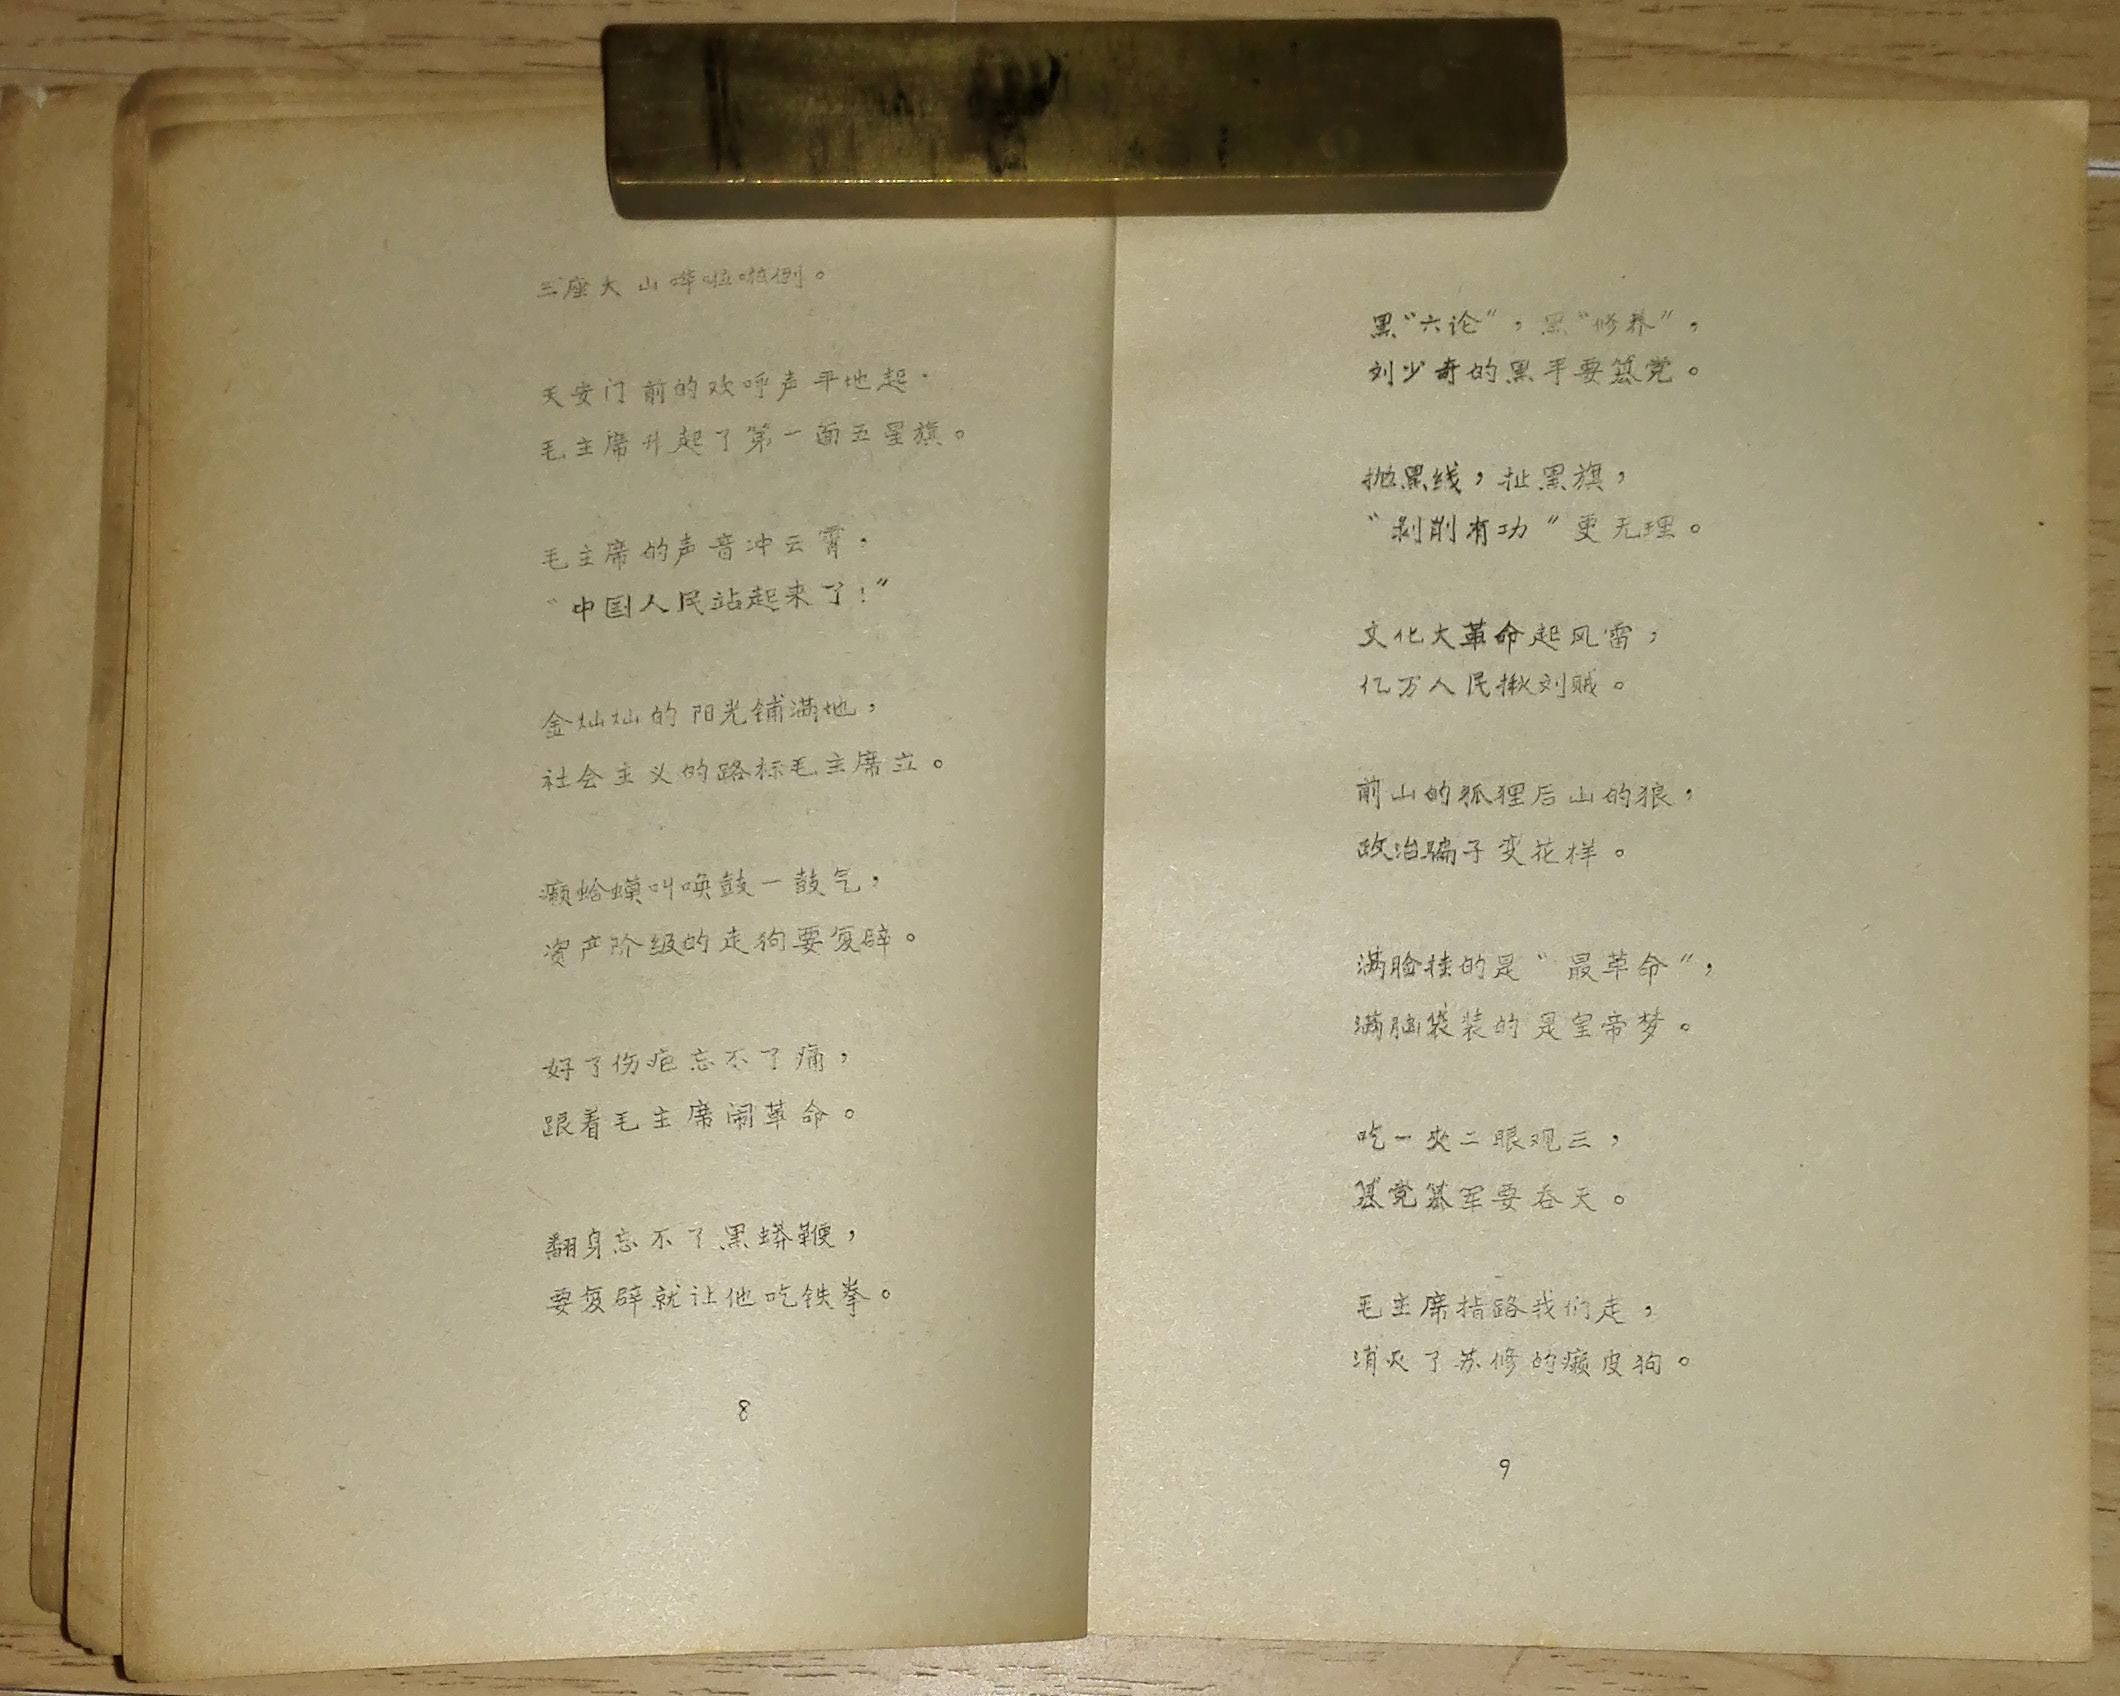 三座大山哗啦啦倒。
天安门前的欢呼声平地起·
毛主席升起了第一面五星旗。
毛主席的声音冲云霄，
“中国人民站起来了！”
金灿灿的阳光铺满地，
社会主义的路标毛主席立。
癞蛤蟆叫唤鼓一鼓气，
资产阶级的走狗要复辟。
好了伤疤忘不了痛，
跟着毛主席闹革命。
翻身忘不了黑蟒鞭，
要复辟就让他吃铁拳。
8
黑“六论”，黑“修养”，
刘少奇的黑手要篡党。
抛黑线，扯黑旗，
“剥削有功”更无理。
文化大革命起风雷，
亿万人民揪刘贼。
前山的狐狸后山的狼，
政治骗子变花样。
满脸挂的是“最革命”，
满脑袋装的是皇帝梦。
吃一夹二眼观三，
篡党篡军要吞天。
毛主席指路我们走，
消灭了苏修的癞皮狗。
9